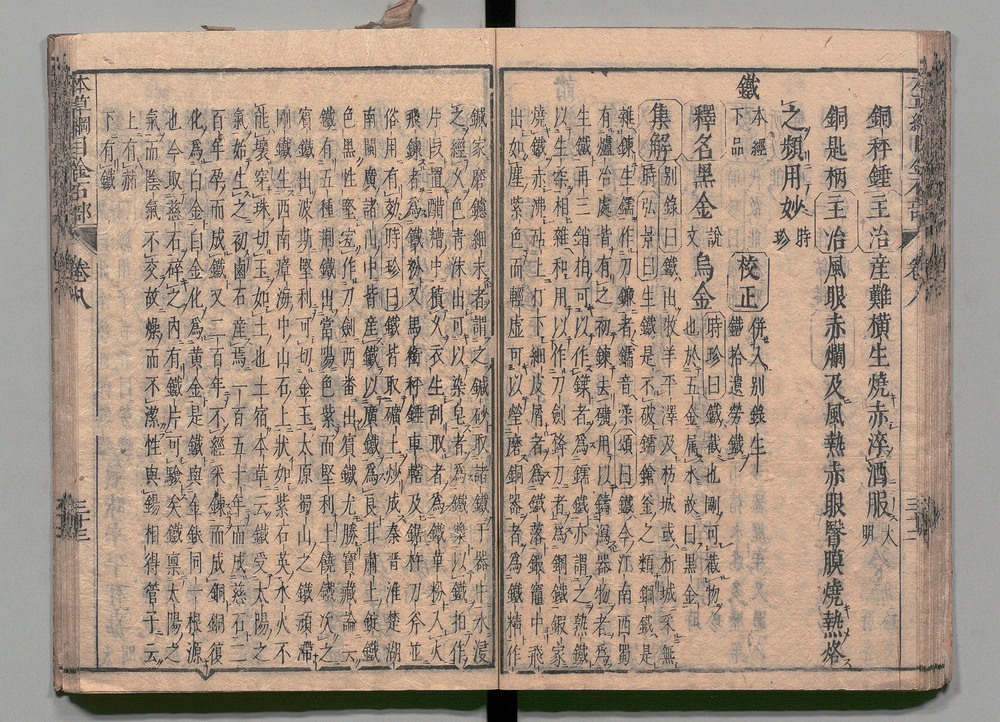 銅秤錘主治産難横生燒赤淬酒服大明
銅匙柄主治風眼赤爛及風熱赤眼瞖膜燒熱烙
之頻用妙時珍
鐵本經下品
校正併入別錄生鐵拾遺勞鐵
釋名黑金說文烏金時珍曰鐵截也剛可截物
也於五金屬水故曰黑金
集解別錄曰鐵出牧羊平澤及枋城或析城采無
時弘景曰生鐵是不破鑐鎗釜之類鋼鐵是
雜鍊生鑐作刀鎌者鑐音柔頌曰鐵今江南西蜀
有爐冶處皆有之初鍊去礦用以鑄瀉器物者爲
生鐵再三銷拍可以作鍱者爲鑐鐵亦謂之熟鐵
以生柔相雜和用以作刀劍鋒刃者爲鋼鐵鍛家
燒鐵赤沸砧上打下細皮屑者爲鐵落鍛竈中飛
出如塵紫色而輕虛可以瑩磨銅器者爲鐵精作
鍼家磨鑢細末者謂之鍼砂取諸鐵于器中水浸
之經久色青沫出可以染皂者爲鐵漿以鐵拍作
片段置醋糟中積久衣生刮取者爲鐵華粉入火
飛鍊者爲鐵粉又馬銜秤錘車轄及鋸杵刀斧並
俗用有效時珍曰鐵皆取礦土炒成秦晉淮楚湖
南閩廣諸山中皆産鐵以廣鐵爲良甘肅土錠鐵
色黑性堅宜作刀劍西番出賓鐵尤勝寶藏論云
鐵有五種荊鐵出當陽色紫而堅利上饒鐵次之
賓鐵出波斯堅利可切金玉太原蜀山之鐵頑滯
剛鐵生西南瘴海中山石上狀如紫石英水火不
能壞穿珠切玉如土也土宿本草云鐵受太陽之
氣始生之初鹵石産焉一百五十年而成慈石二
百年孕而成鐵又二百年不經采鍊而成銅銅復
化爲白金白金化爲黃金是鐵與金銀同一根源
也今取慈石碎之內有鐵片可驗矣鐵禀太陽之
氣而陰氣不交故燥而不潔性與錫相得管子云
上有赭
下有鐵